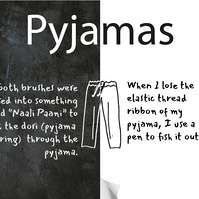 Pyjamas
both brushes were
ed into something
d "Naali Paani" to
the dori (pyjama
ring) through the
pyjama.
When I lose the
elastic thread
ribbon of my
pyjama, I use a
pen to fish it out